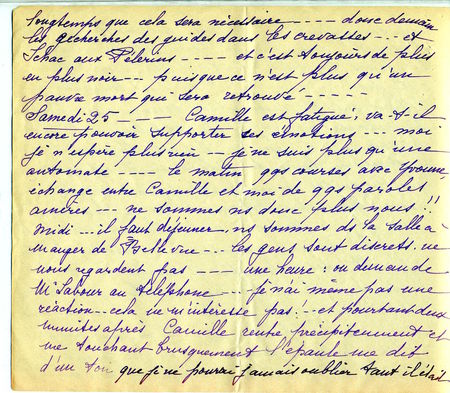 longtemps que cela sera nécessaire ---- donc demain
les recherches des guides dans les crevasses --- et
Schac aux Pélerins ---- et c'est toujours de plus
en plus noir --- puisque ce n'est plus qu'un
pauvre mort qui sera retrouvé -----
Samedi 25 ---- Camille est fatigué, va-t-il
encore pouvoir supporter ses émotions --- moi
je n'espère plus rien -- je ne suis plus qu'une
automate ---- le matin qqs courses avec Yvonne
échange entre Camille et moi de qqs paroles
amères --- ne sommes ns donc plus nous !!
Midi ... il faut déjeuner, ns sommes ds la salle à
manger de Bellevue --- les gens sont discrets, ne
nous regardent pas --- une heure : on demande
Mr Latour au téléphone --- je n'ai même pas une
réaction -- cela ne m'intéresse pas -- et pourtant deux
minutes après Camille rentre précipitemment et
me touchant brusquement l'épaule me dit
d'un ton que je ne pourrai jamais oublier tant il était